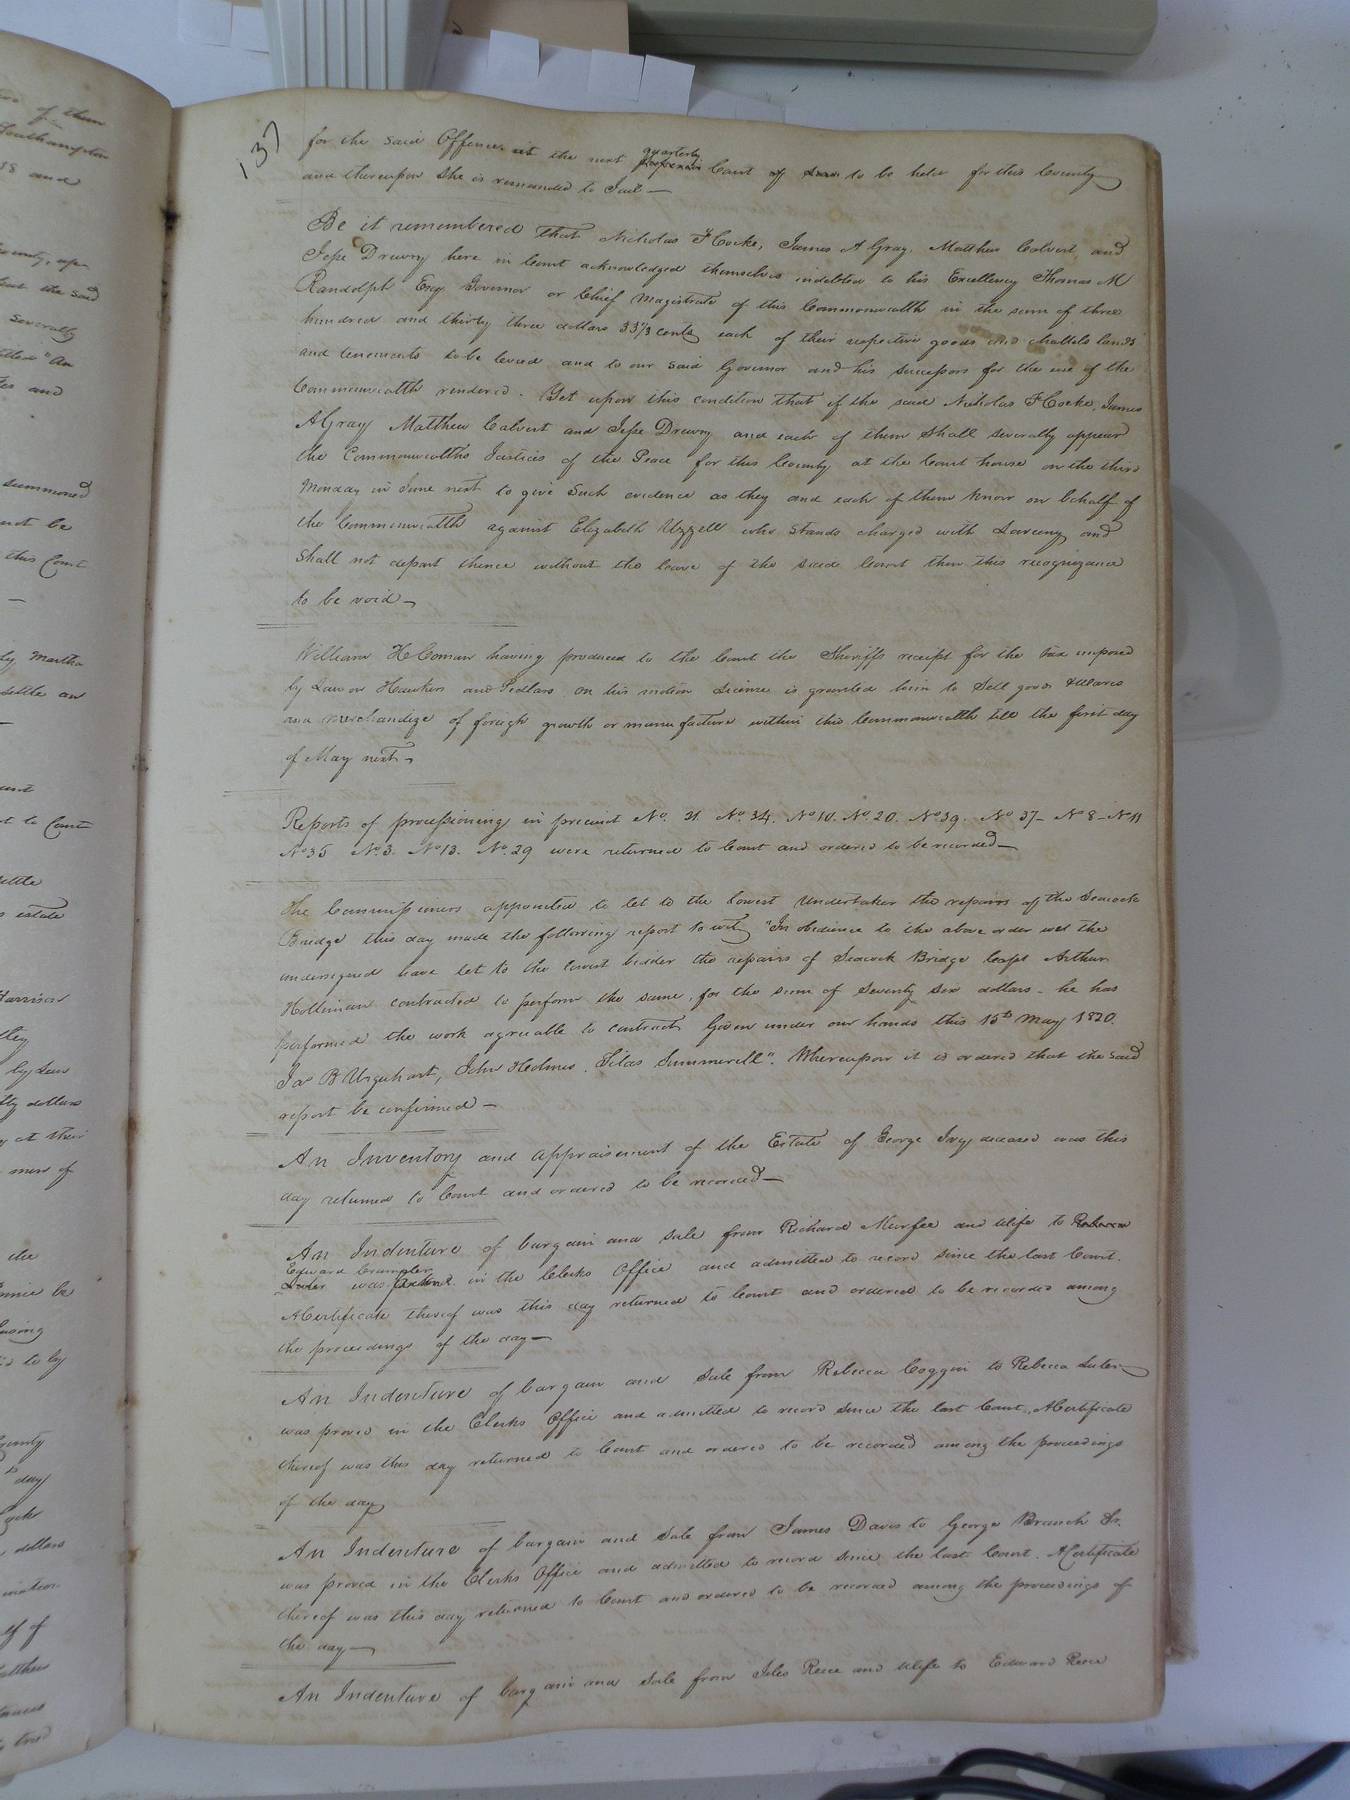 137
for the said Offence at the next quarterly Court of to be held for this County
and thereupon she is remanded to Jail —
Be it remembered that Nicholas F Cocke, James A Gray, Matthew Calvert and
Jesse Drewry here in Court acknowledged themselves indebted to his Excellency Thomas M
Randolph Esqr Governor or Chief Magistrate of this Commonwealth in the sum of three
hundred and thirty three dollars 33⅓ cents each of their respective goods and chattels lands
and tenements to be levied and to our said Governor and his successors for the use of the
Commonwealth rendered. Yet upon this condition that if the said Nicholas F Cocke, James
A Gray Matthew Calvert and Jesse Drewry and each of them shall severally appear
the Commonwealths Justices of the Peace for this County at the Court house on the third
Monday in June next to give such evidence as they and each of them know on behalf of
the Commonwealth against Elizabeth Uzzell who stands charged with Larceny and
shall not depart thence without the leave of the said Court then this recognizance
to be void —
William H Coman having produced to the Court the Sheriffs receipt for the tax imposed
by Law on Hawkers and Pedlars on his motion License is granted him to sell goods Wares
and Merchandize of foreign growth or manufacture within this Commonwealth till the first day
of May next —
Reports of processioning in precinct No. 31 No. 34. No 10. No 20. No 39. No 37 - No 8 - No 11
No 35 No. 3. No 13. No. 29 were returned to Court and ordered to be recorded —
The Commissioners appointed to let to the lowest undertaker the repairs of the Seacock
Bridge this day made the following report to wit, "In obedience to the above order we the
undersigned have let to the lowest bidder the repairs of Seacock Bridge Capt Arthur
Holleman contracted to perform the same, for the sum of Seventy six dollars - he has
performed the work agreable to contract Given under our hands this 15th May 1820.
Jas B Urquhart, John Holmes, Silas Summerell". Whereupon it is ordered that the said
report be confirmed —
An Inventory and appraisement of the Estate of George Ivy deceased was this
day returned to Court and ordered to be recorded —
An Indenture of bargain and sale from Richard Murfee and Wife to Rebecca
Edward Crumpler
Luter was in the Clerks Office and admitted to record since the last Court.
A Certificate thereof was this day returned to Court and ordered to be recorded among
the proceedings of the day —
An Indenture of bargain and sale from Rebecca Coggin to Rebecca Luter
was proved in the Clerks Office and admitted to record since the last Court. A Certificate
thereof was this day returned to Court and ordered to be recorded among the proceedings
of the day
An Indenture of bargain and sale from James Davis to George Branch Sr.
was proved in the Clerks Office and admitted to record since the last Court. A Certificate
thereof was this day returned to Court and ordered to be recorded among the proceedings of
the day —
An Indenture of bargain and sale from Giles Reese and Wife to Edward Reese